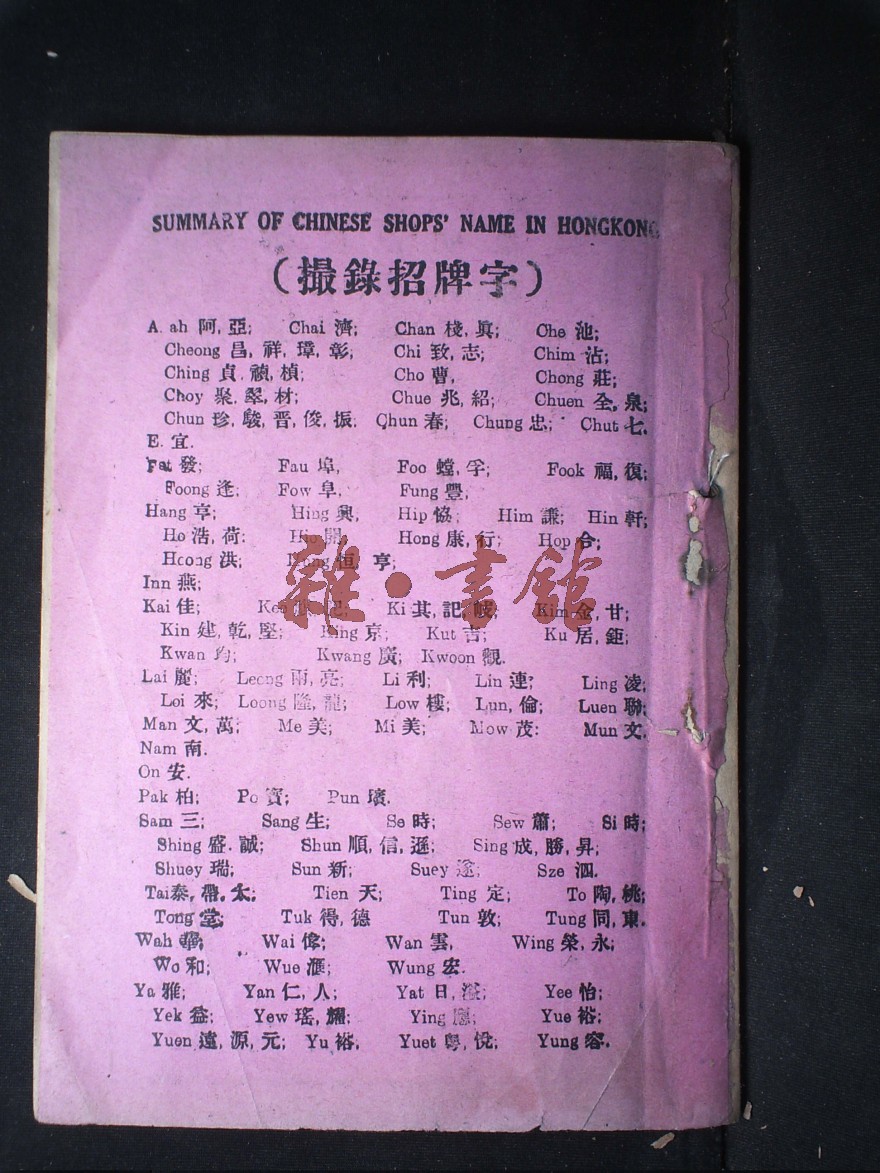 SUMMARY OF CHINESE SHOPS' NAME IN HONGKONG
(撮錄招牌字)
A. ah 阿, 亞; Chai 濟; Chan 棧, 眞; Che 池;
Cheong 昌, 祥, 璋, 彰; Chi 致, 志; Chim 沾;
Ching 貞, 禎, 楨; Cho 曹, Chong 莊;
Choy 聚, 翠, 材; Chue 兆, 紹; Chuen 全, 泉;
Chun 珍, 駿, 晋, 俊, 振. Chun 春; Chung 忠; Chut 七.
E. 宜.
Fat 發; Fau 埠, Foo 孚; Fook 福, 復;
Foong 逢; Fow 阜, Fung 豐;
Hang 亨; Hing 興, Hip 恊; Him 謙; Hin 軒;
Ho 浩, 荷: 開, Hong 康, 行; Hop 合;
Hoong 洪; 恒, 亨;
Inn 燕;
Kai 佳; Kee Ki 其, 記, Kim 金, 甘;
Kin 建, 乾, 堅; King 京; Kut 吉; Ku 居, 鉅;
Kwan 均; Kwang 廣; Kwoon 觀.
Lai 麗; Leong 兩, 亮; Li 利; Lin 連; Ling 凌;
Loi 來; Loong 隆, 龍; Low 樓; Lun, 倫; Luen 聯;
Man 文, 萬; Me 美; Mi 美; Mow 茂: Mun 文,
Nam 南.
On 安.
Pak 柏; Po 寳; Pun 璸.
Sam 三; Sang 生; Se 時; Sew 蕭; Si 時;
Shing 盛. 誠; Shun 順, 信, 遜; Sing 成, 勝, 昇;
Shuey 瑞; Sun 新; Suey 遂; Sze 泗.
Tai 泰, 帶, 太; Tien 天; Ting 定; To 陶, 桃;
Tong 堂; Tuk 得, 德 Tun 敦; Tung 同, 東.
Wah 華; Wai 偉; Wan 雲, Wing 榮, 永;
Wo 和; Wue 滙; Wung 宏.
Ya 雅; Yan 仁, 人; Yat 日, 溢; Yee 怡;
Yek 益; Yew 瑤, 耀; Ying 應; Yue 裕;
Yuen 遠, 源, 元; Yu 裕, Yuet 粤, 悅; Yung 容.
雜·書館